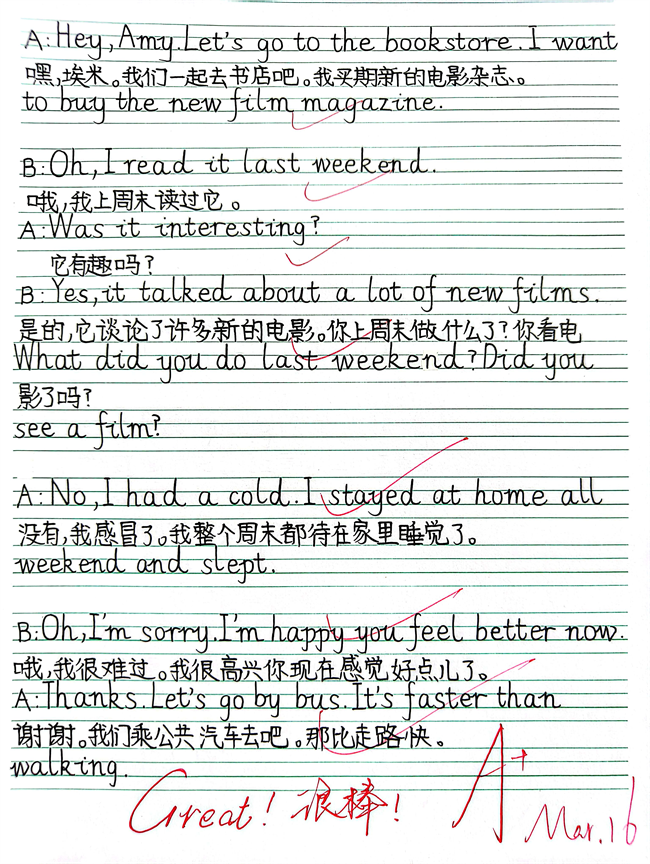 A:Hey,Amy.Let's go to the bookstore.I want
嘿,埃米。我们一起去书店吧。我买期新的电影杂志。
to buy the new film magazine.
B:Oh,I read it last weekend.
哦,我上周末读过它。
A:Was it interesting?
它有趣吗?
B:Yes,it talked about a lot of new films.
是的,它谈论了许多新的电影。你上周末做什么了?你看电
What did you do last weekend?Did you
影了吗?
see a film?
A:No,I had a cold..I stayed at home all
没有,我感冒了。我整个周末都待在家里睡觉了。
weekend and slept.
B:Oh,I'm sorry.I'm happy you feel better now.
哦,我很难过。我很高兴你现在感觉好点儿了。
A:Thanks.Let's go by bus.It's faster than
谢谢。我们乘公共汽车去吧。那比走路快。
walking.
Great! 很棒!
A+
Mar.16